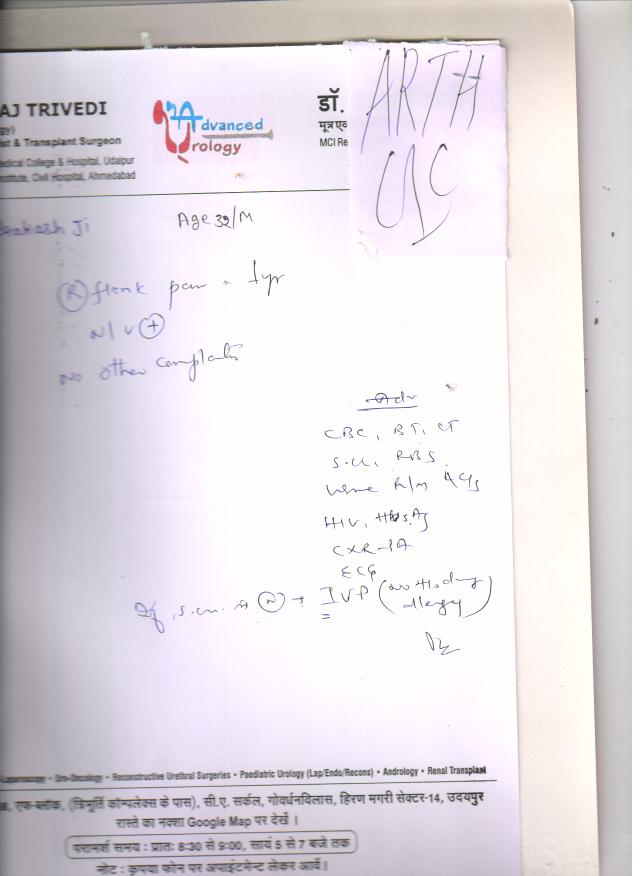 AJ TRIVEDI
gy)
st & Transplant Surgeon
edical College & Hospital, Udaipur
stitute, Civil Hospital, Ahmedabad
Advanced
Urology
डॉ.
मूत्र एव
MCI Re
ARTH
akash Ji
Age 32/M
(R) flank pain 1yr
N/V (+)
No other complaints
Adv
CBC, BT, CT
S.Cr, RBS
Urine R/M
HIV, HBsAg
CXR-PA
ECG
If S.Cr. is (N) → IVP (no H/o drug allergy)
Laparoscopy • Uro-Oncology • Reconstructive Urethral Surgeries • Paediatric Urology (Lap/Endo/Recons) • Andrology • Renal Transplant
एफ-ब्लॉक, (त्रिमूर्ति कॉम्पलेक्स के पास), सी.ए. सर्कल, गोवर्धनविलास, हिरण मगरी सेक्टर-14, उदयपुर
रास्ते का नक्शा Google Map पर देखें ।
परामर्श समय : प्रातः 8:30 से 9:00, सायं 5 से 7 बजे तक
नोट : कृपया फोन पर अपाईंटमेन्ट लेकर आवें।